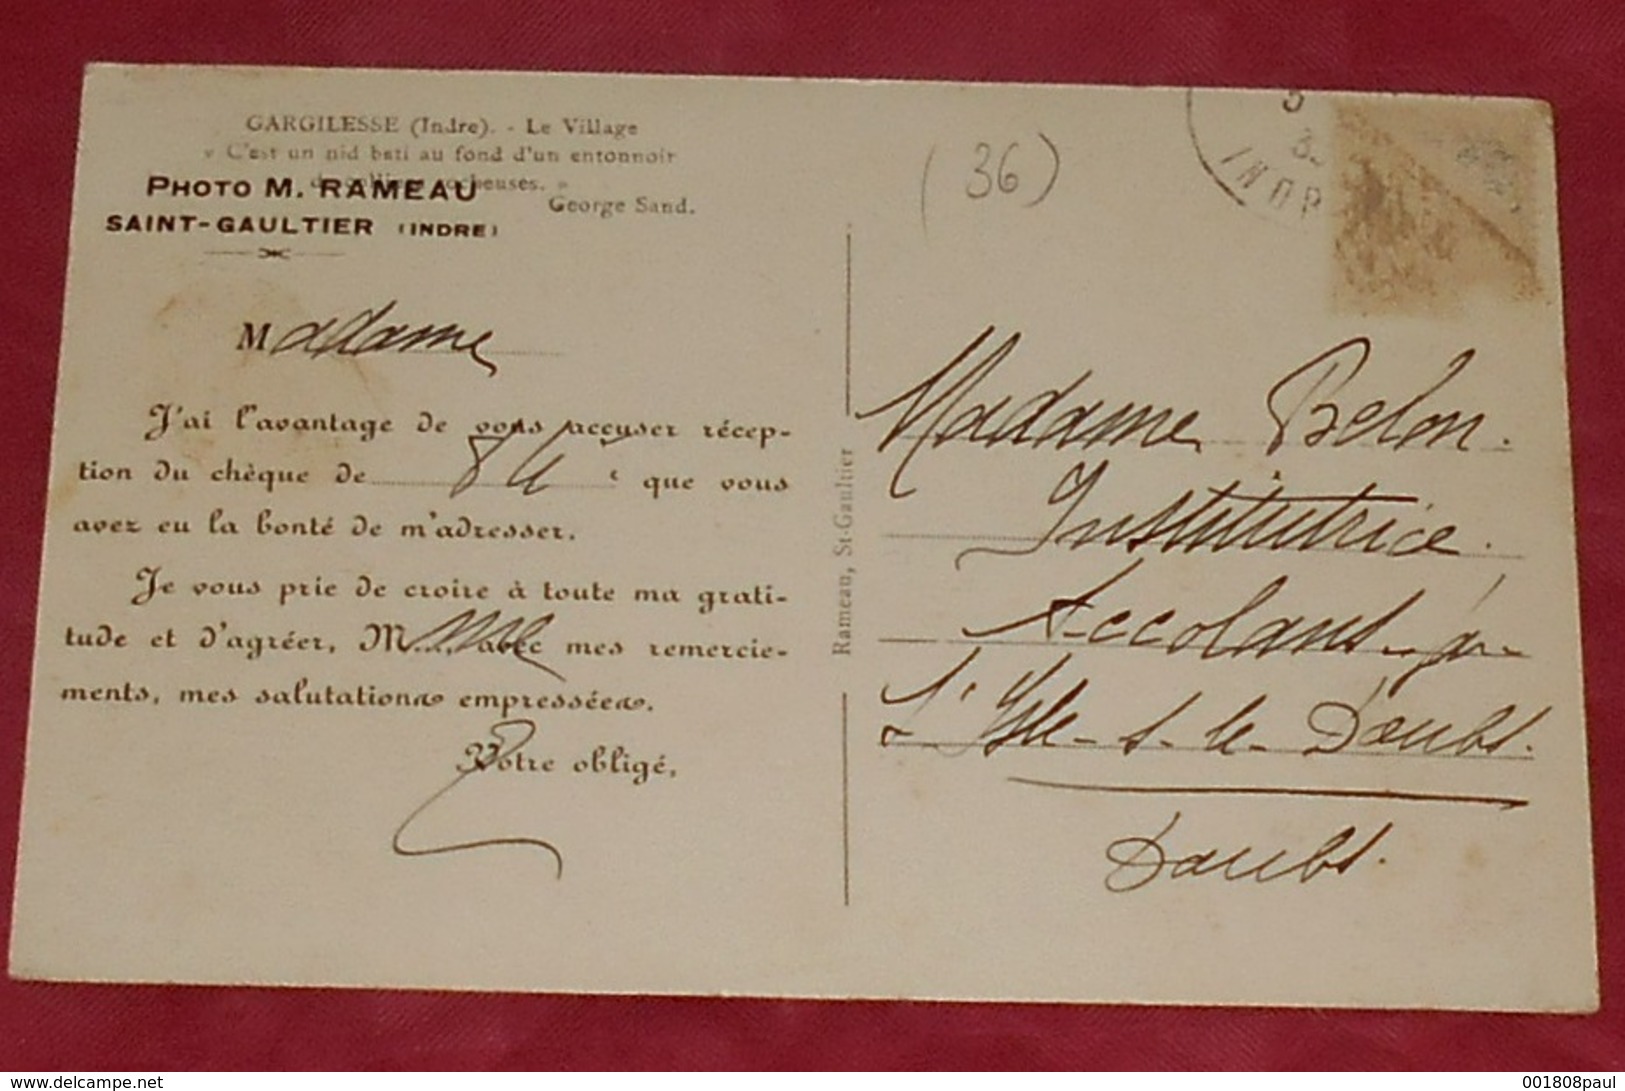 GARGILESSE (Indre). - Le Village
« C'est un nid bati au fond d'un entonnoir
PHOTO M. RAMEAU
George Sand.
SAINT-GAULTIER (INDRE)
Madame
J'ai l'avantage de vous accuser récep-
tion du chèque de 84 que vous
avez eu la bonté de m'adresser.
Je vous prie de croire à toute ma grati-
tude et d'agréer, M avec mes remercie-
ments, mes salutations empressées.
Votre obligé,
Rameau, St-Gaultier
(36)
INDR
Madame Belon.
Institutrice.
Accolans
L'Isle-s-le-Doubs.
Doubs.
www.delcampe.net
001808paul